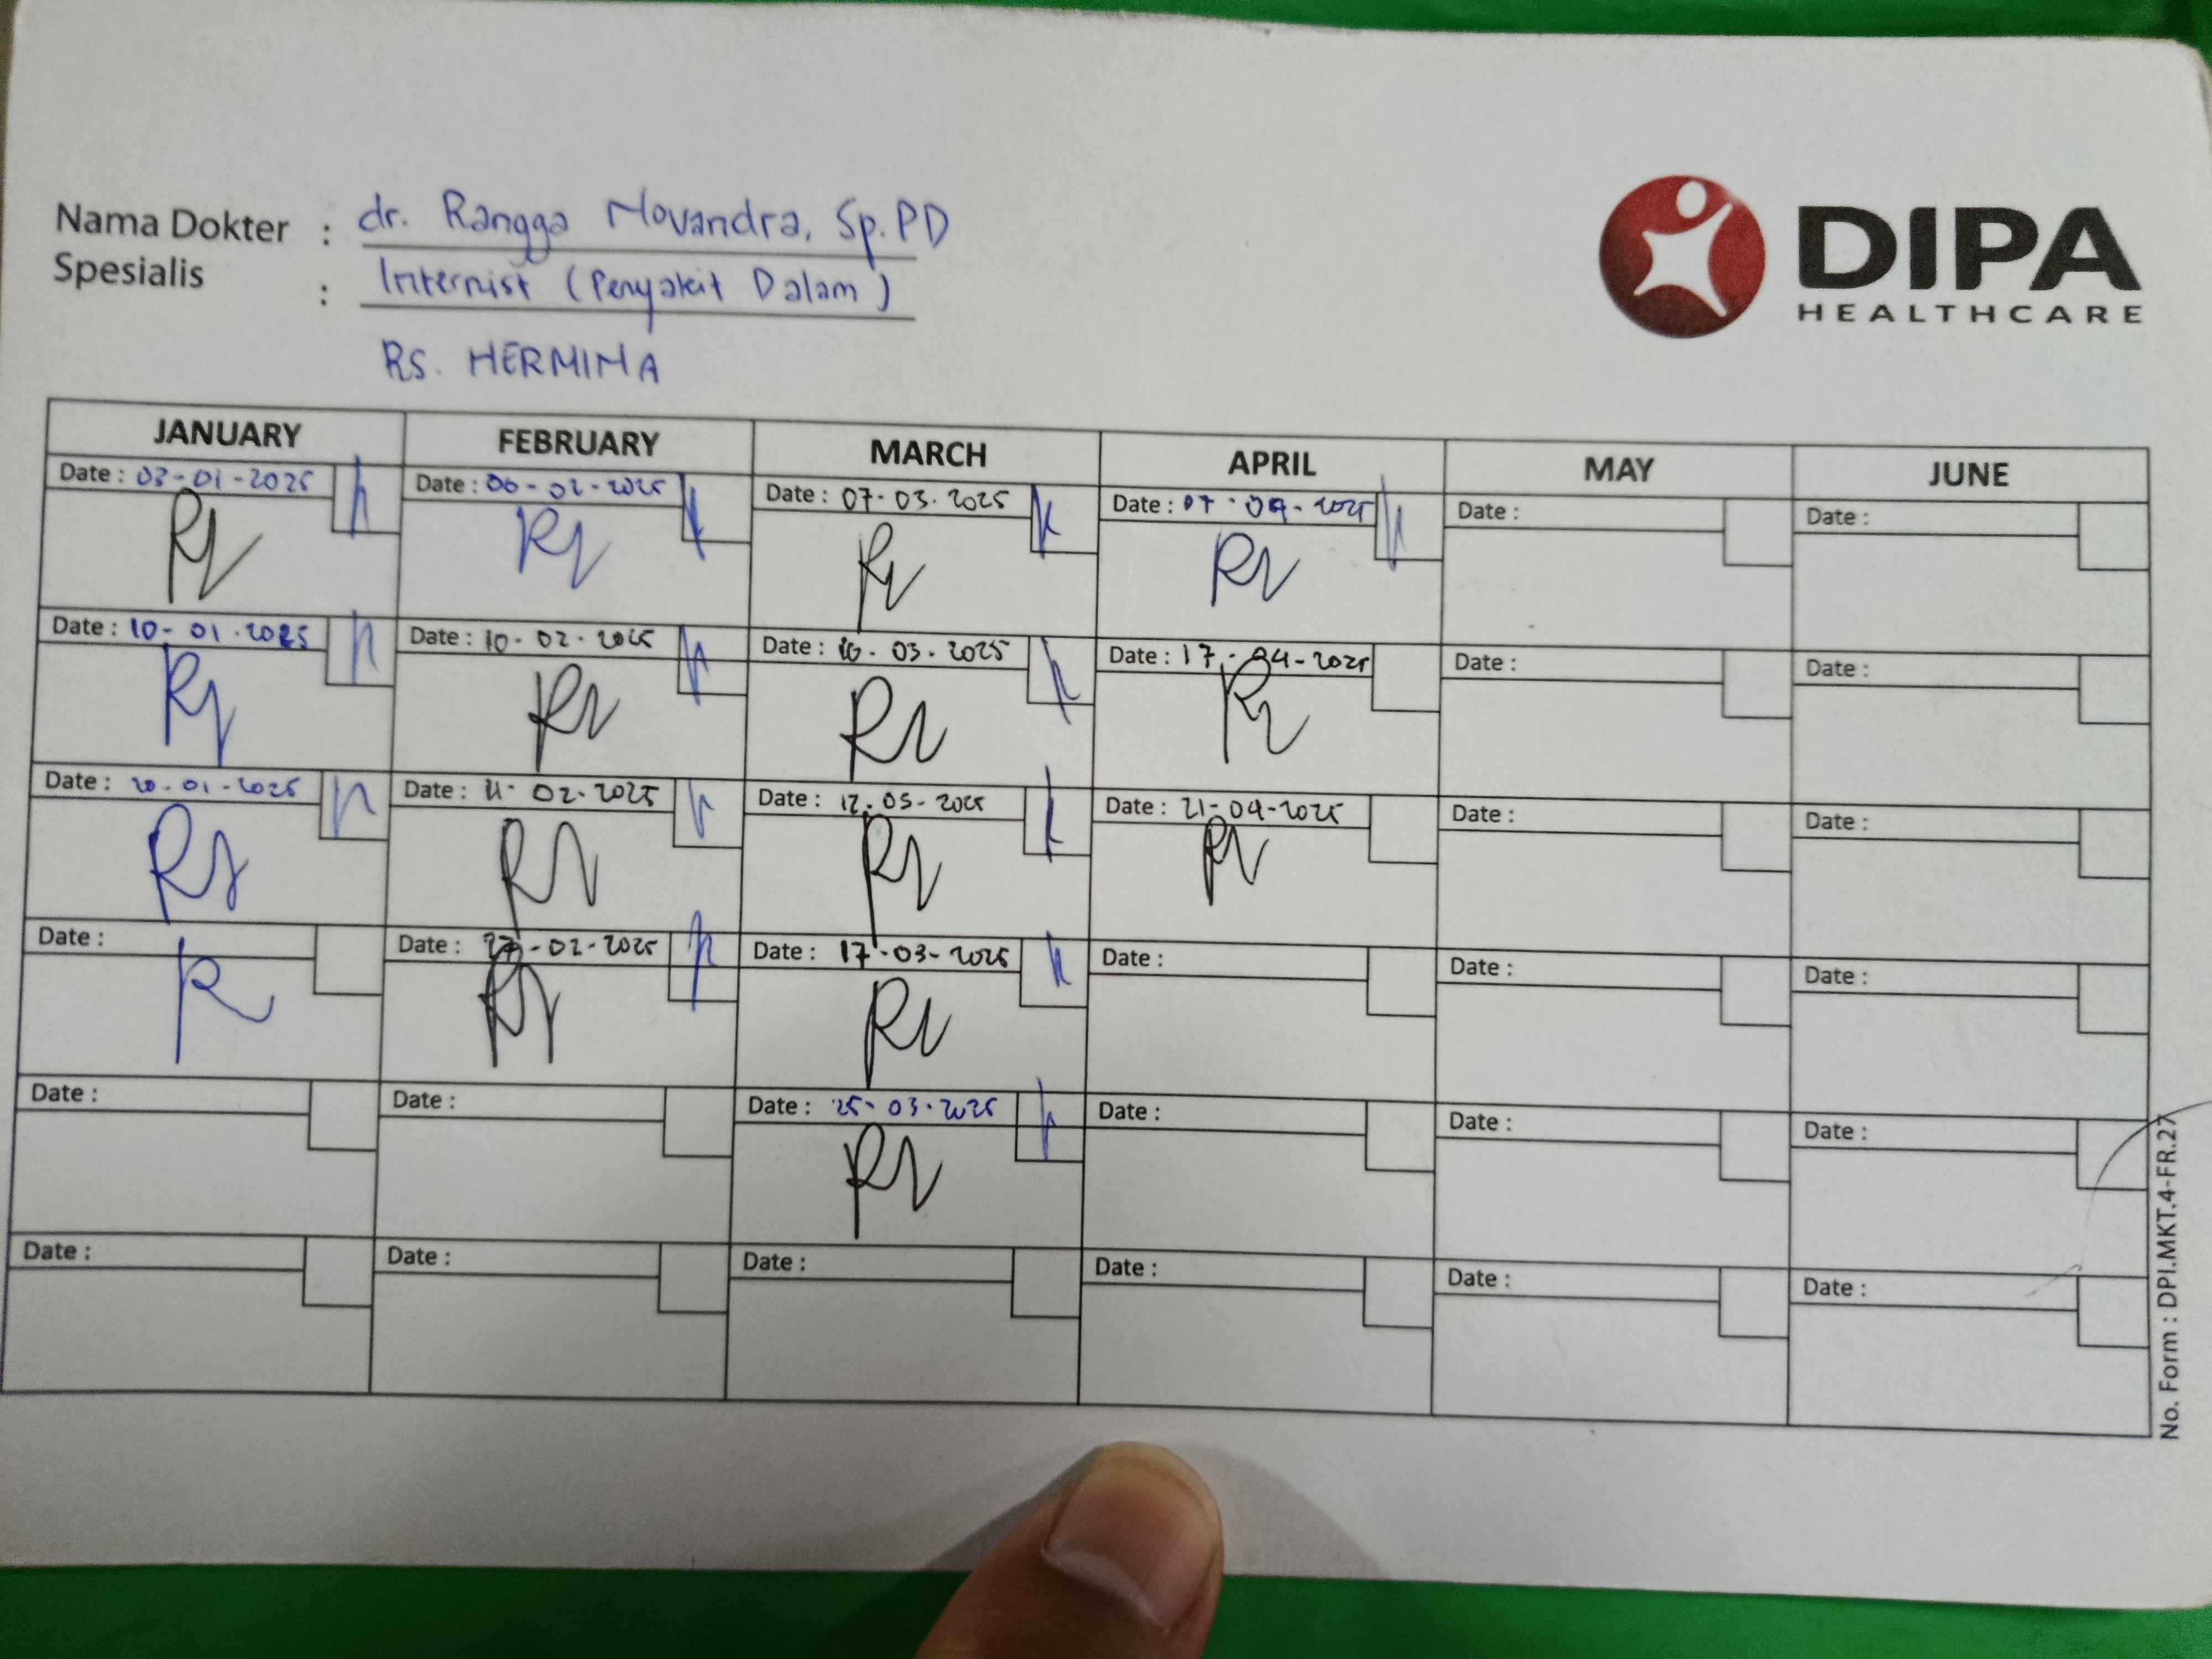 Nama Dokter : dr. Rangga Novandra, Sp.PD
Spesialis : Internist (Penyakit Dalam)
RS. HERMINA
DIPA
HEALTHCARE
JANUARY FEBRUARY MARCH APRIL MAY JUNE
Date : 03-01-2025 Date : 06-02-2025 Date : 07-03-2025 Date : 07-04-2025 Date : Date :
Date : 10-01-2025 Date : 10-02-2025 Date : 10-03-2025 Date : 17-04-2025 Date : Date :
Date : 20-01-2025 Date : 02-2025 Date : 12-03-2025 Date : 21-04-2025 Date : Date :
Date : Date : 27-02-2025 Date : 17-03-2025 Date : Date : Date :
Date : Date : Date : 25-03-2025 Date : Date : Date :
Date : Date : Date : Date : Date : Date :
No. Form : DPI.MKT.4-FR.27